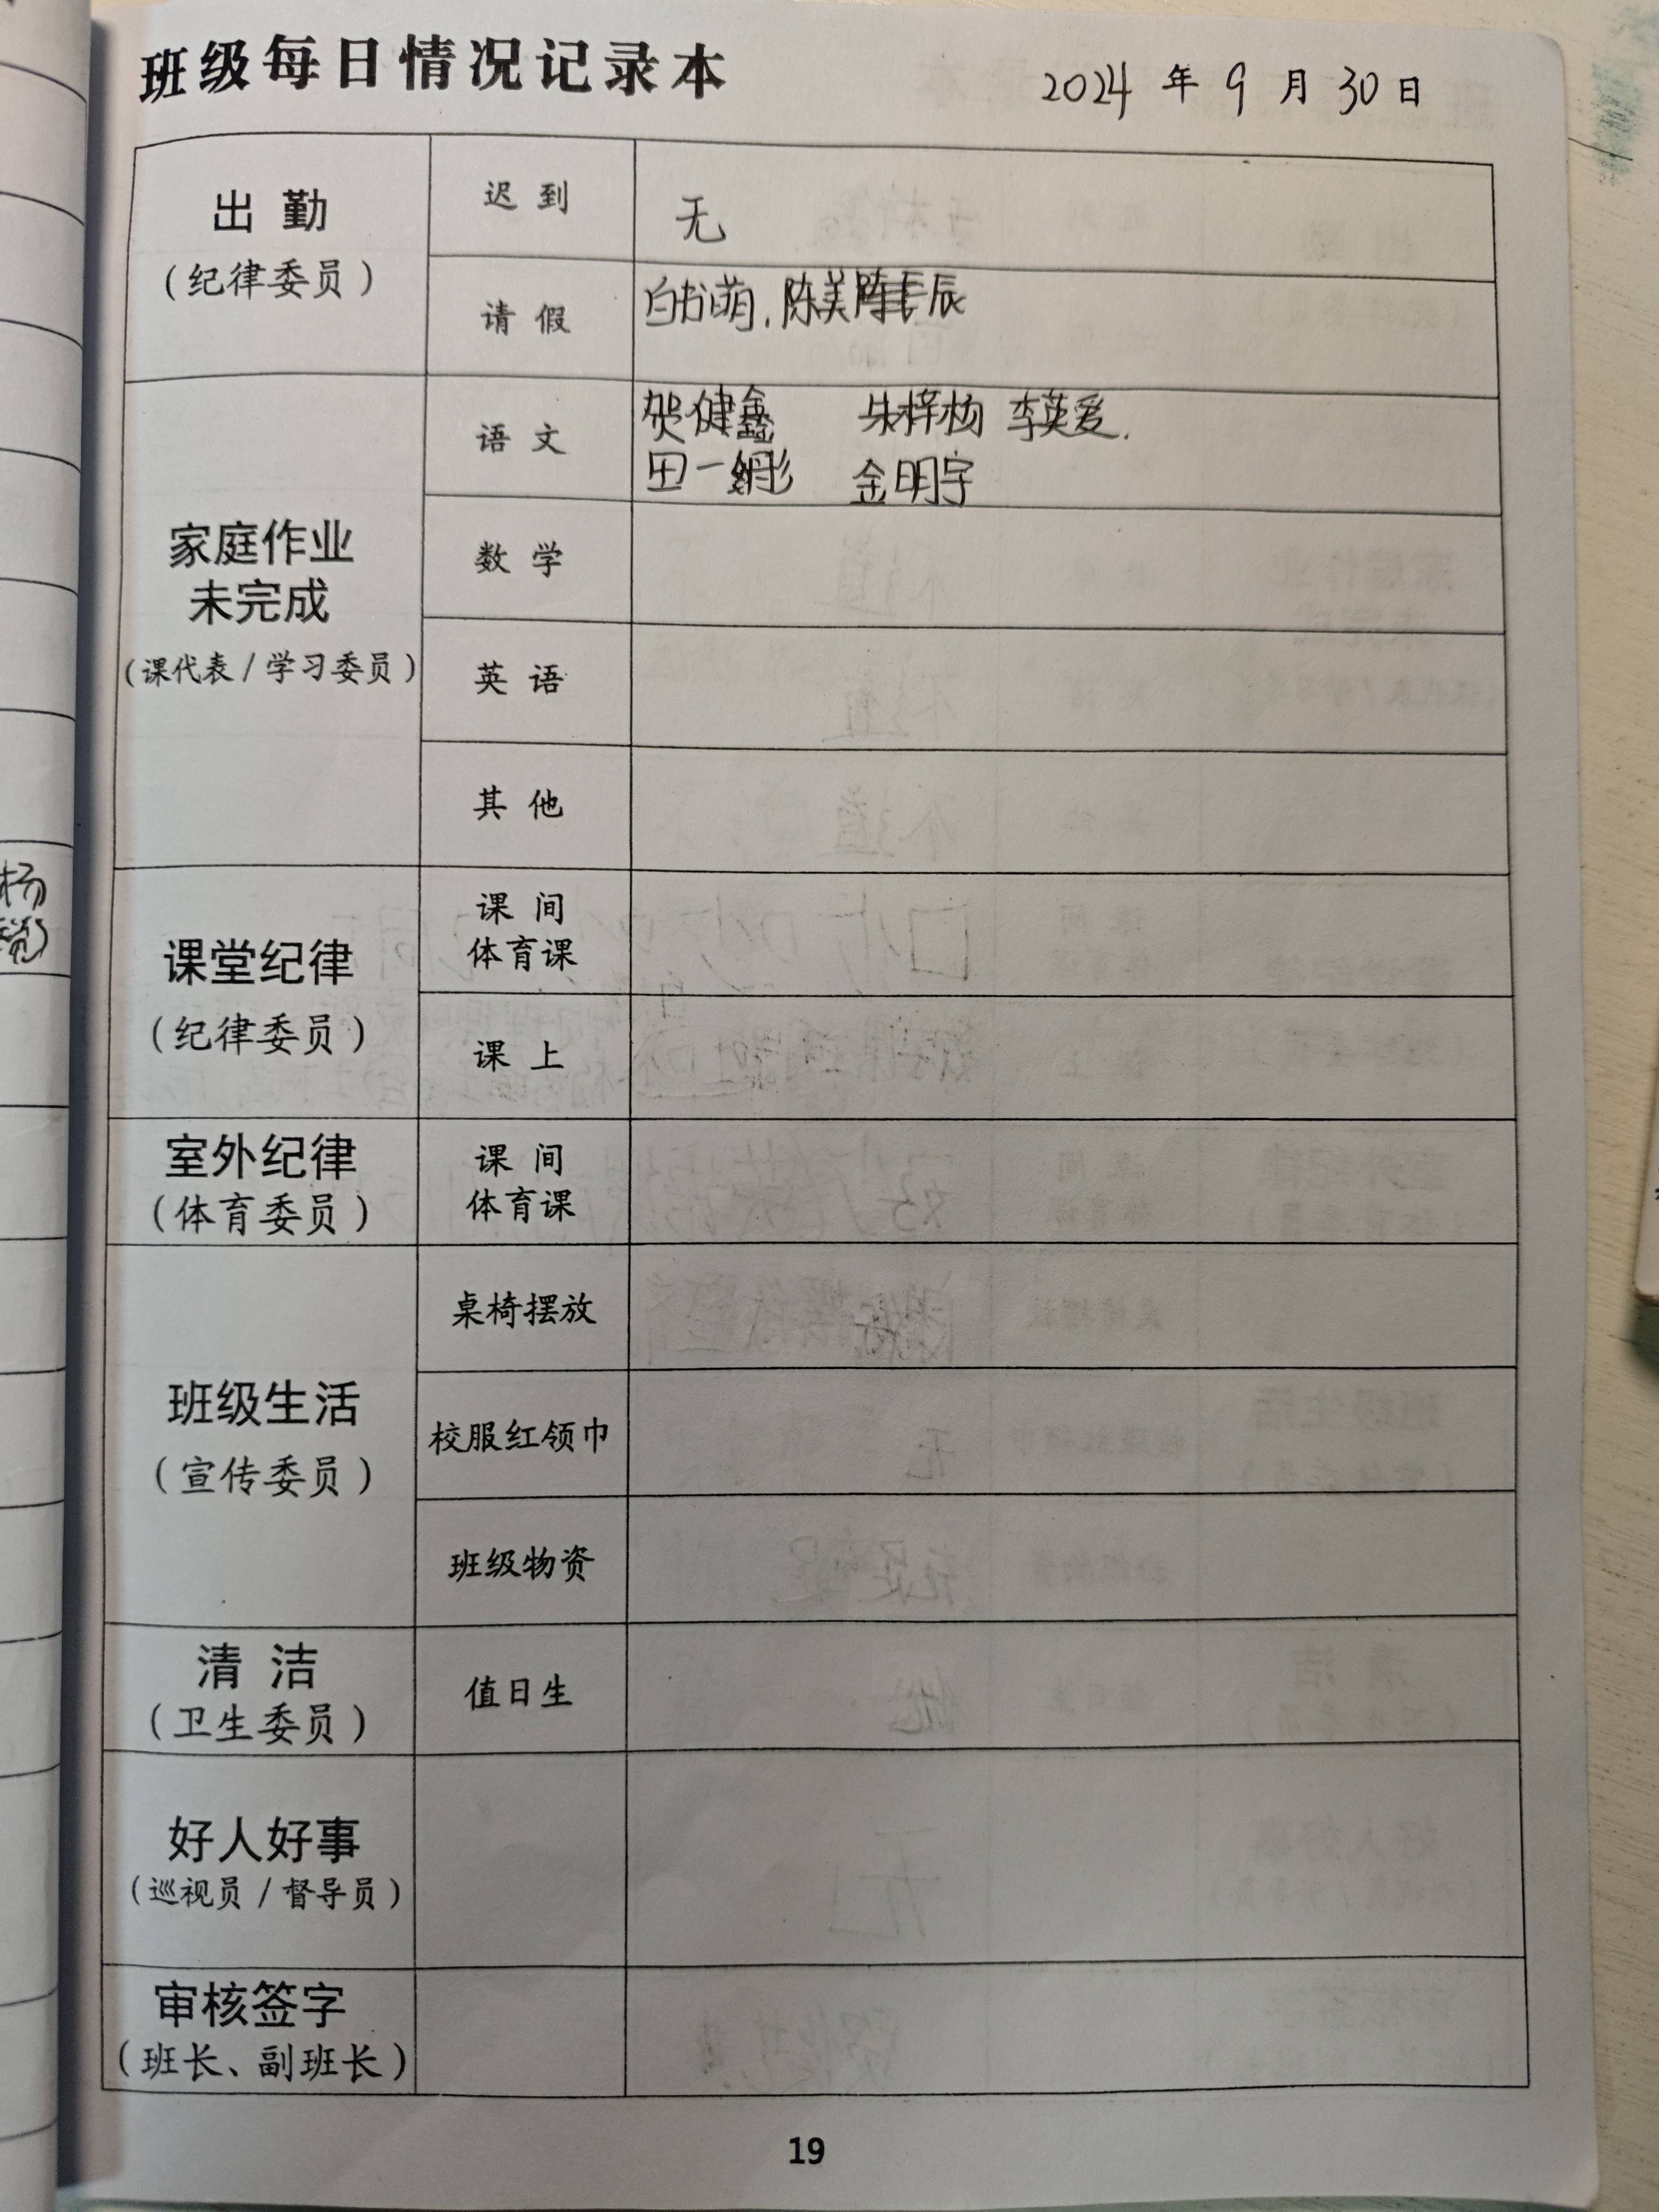 班级每日情况记录本
2024 年 9 月 30 日
出 勤
(纪律委员)
迟 到
无
请 假
白书萌,陈美 辰
家庭作业
未完成
(课代表 / 学习委员)
语 文
贺健鑫 朱梓杨 李英爱.
田一 彤 金明宇
数 学
英 语
其 他
课堂纪律
(纪律委员)
课 间
体育课
课 上
室外纪律
(体育委员)
课 间
体育课
班级生活
(宣传委员)
桌椅摆放
校服红领巾
班级物资
清 洁
(卫生委员)
值日生
好人好事
(巡视员 / 督导员)
审核签字
(班长、副班长)
19
杨